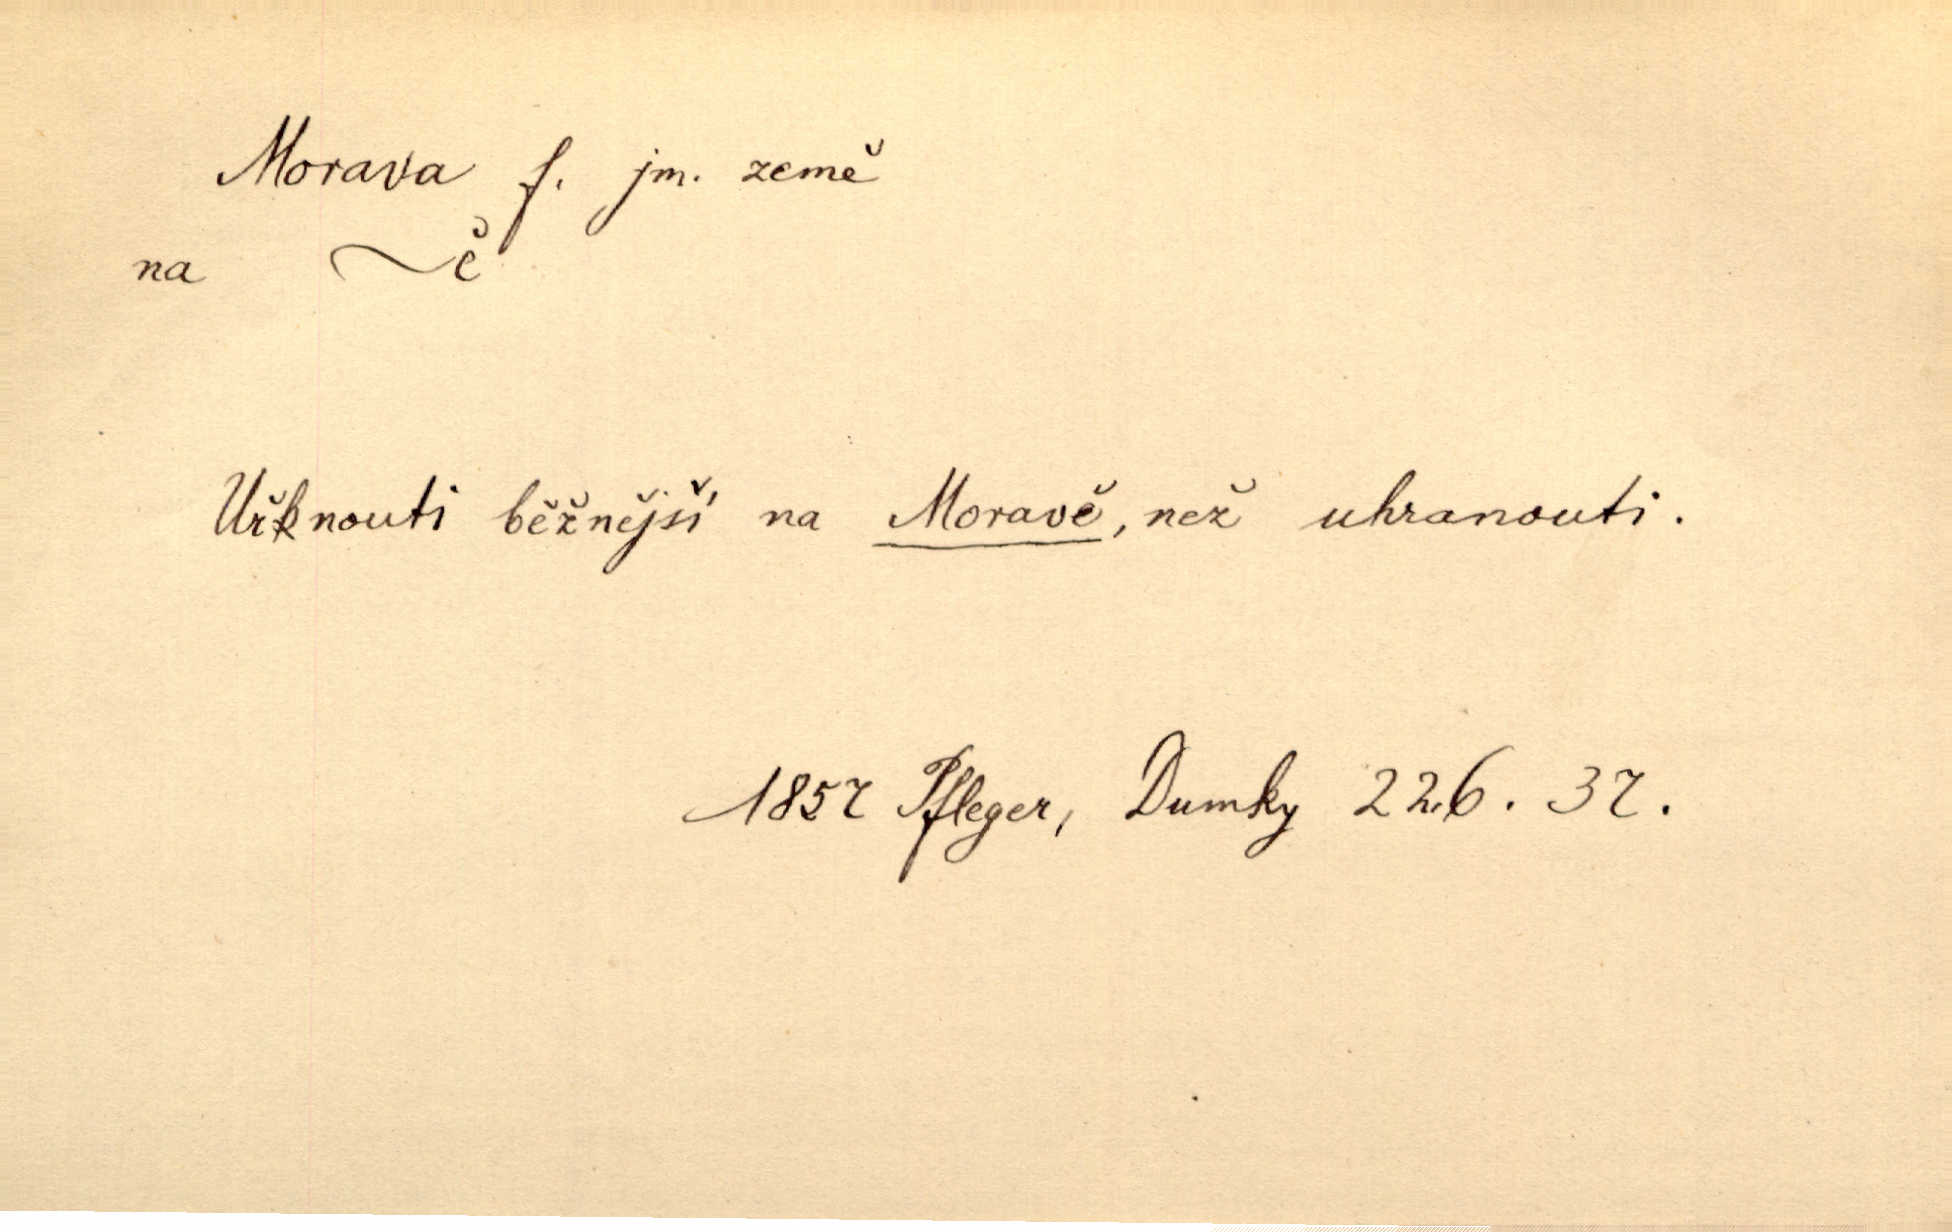 Morava f. jm. země
na ~ě
Uřknouti běžnější na Moravě, než uhranouti.
1857 Pfleger, Dumky 226. 37.